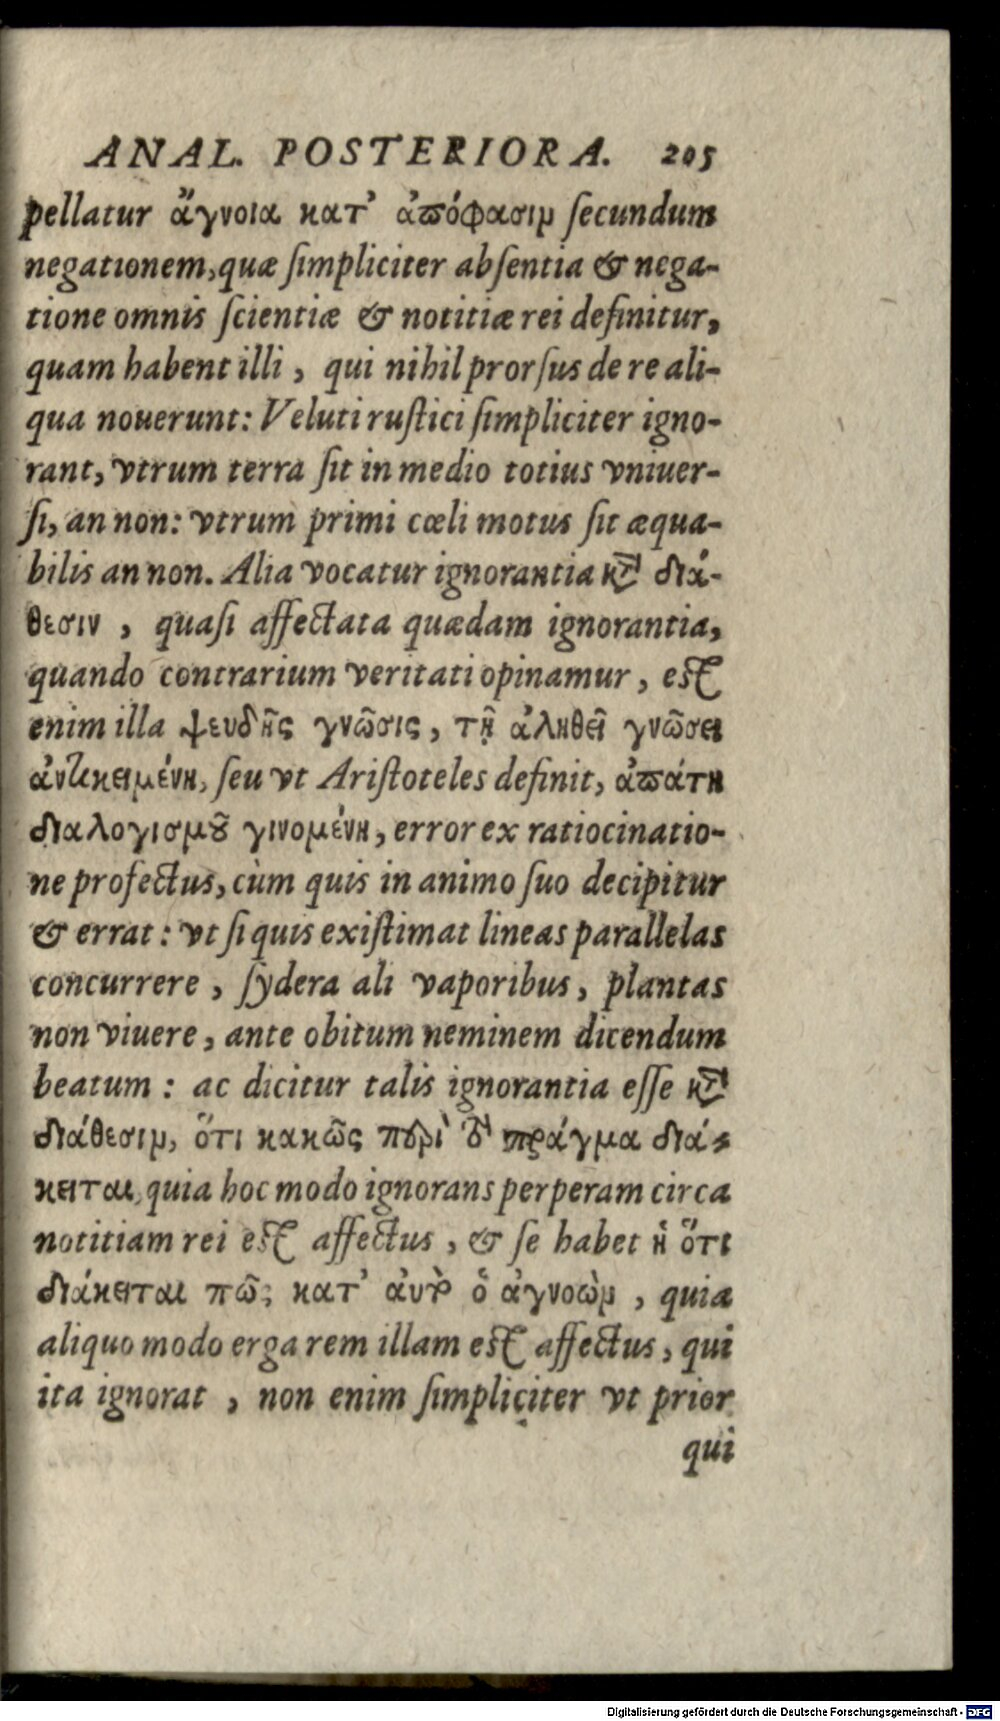 ANAL. POSTERIORA. 205
pellatur ἄγνοια κατ' ἀπόφασιν ſecundum
negationem, quæ ſimpliciter abſentia & nega-
tione omnis ſcientiæ & notitiæ rei definitur,
quam habent illi, qui nihil prorſus de re ali-
qua nouerunt: Veluti ruſtici ſimpliciter igno-
rant, vtrum terra ſit in medio totius vniuer-
ſi, an non: vtrum primi cœli motus ſit æqua-
bilis an non. Alia vocatur ignorantia κỳ διά-
θεσιν, quaſi affectata quædam ignorantia,
quando contrarium veritati opinamur, eſt
enim illa ψευδὴς γνῶσις, τῇ ἀληθεῖ γνῶσει
ἀντικειμένη, ſeu vt Ariſtoteles definit, ἀπάτη
διαλογισμοῦ γινομένη, error ex ratiocinatio-
ne profectus, cùm quis in animo ſuo decipitur
& errat: vt ſi quis exiſtimat lineas parallelas
concurrere, ſydera ali vaporibus, plantas
non viuere, ante obitum neminem dicendum
beatum: ac dicitur talis ignorantia eſſe κỳ
διάθεσιν, ὅτι κακῶς περὶ τὸ πρᾶγμα διά-
κειται, quia hoc modo ignorans perperam circa
notitiam rei eſt affectus, & ſe habet ἢ ὅτι
διάκειται πῶς κατ' ἀυτὸ ὁ ἀγνοῶν, quia
aliquo modo erga rem illam eſt affectus, qui
ita ignorat, non enim ſimpliciter vt prior
qui
Digitalisierung gefördert durch die Deutsche Forschungsgemeinschaft - DFG